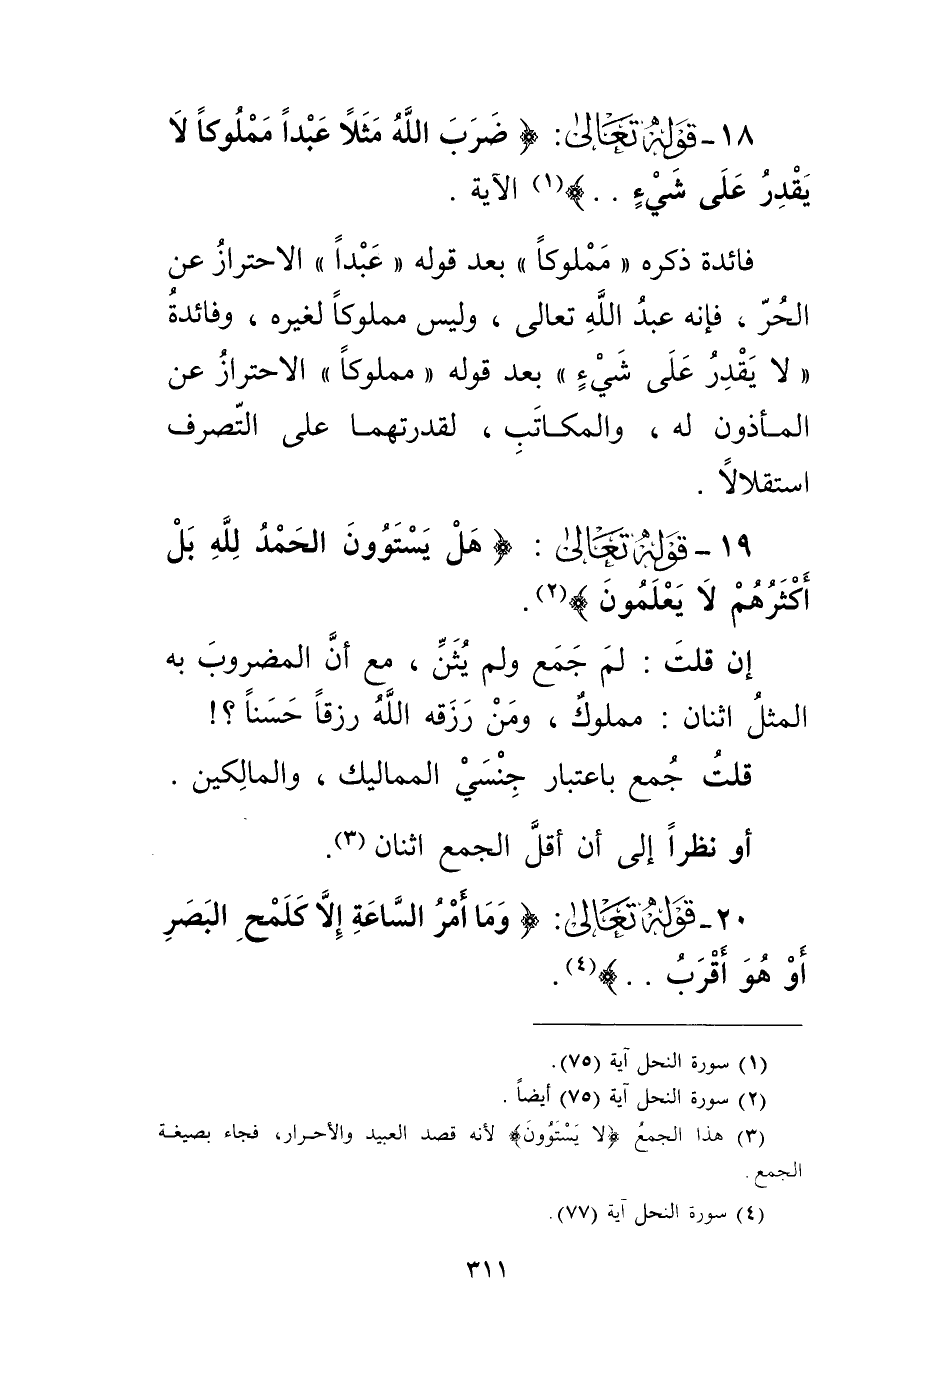 ١٨ - قَوْلُهُ تَعَالَىٰ : ﴿ ضَرَبَ اللَّهُ مَثَلًا عَبْداً مَمْلُوكاً لَا
يَقْدِرُ عَلَى شَيْءٍ . . ﴾(١) الآية .
فائدة ذكره « مَمْلوكاً » بعد قوله « عَبْداً » الاحترازُ عن
الحُرّ ، فإنه عبدُ اللَّهِ تعالى ، وليس مملوكاً لغيره ، وفائدةُ
« لا يَقْدِرُ عَلَى شَيْءٍ » بعد قوله « مملوكاً » الاحترازُ عن
المأذون له ، والمكاتَبِ ، لقدرتهما على التّصرف
استقلالاً .
١٩ - قَوْلُهُ تَعَالَىٰ : ﴿ هَلْ يَسْتَوُونَ الحَمْدُ لِلَّهِ بَلْ
أَكْثَرُهُمْ لَا يَعْلَمُونَ ﴾(٢).
إن قلتَ : لمَ جَمَع ولم يُثَنِّ ، مع أنَّ المضروبَ به
المثلُ اثنان : مملوكٌ ، ومَنْ رَزَقه اللَّهُ رزقاً حَسَناً ؟!
قلتُ جُمع باعتبار جِنْسَيْ المماليك ، والمالِكين .
أو نظراً إلى أن أقلَّ الجمع اثنان (٣).
٢٠ - قَوْلُهُ تَعَالَىٰ : ﴿ وَمَا أَمْرُ السَّاعَةِ إِلَّا كَلَمْحِ البَصَرِ
أَوْ هُوَ أَقْرَبُ . . ﴾(٤).
(١) سورة النحل آية (٧٥).
(٢) سورة النحل آية (٧٥) أيضاً .
(٣) هذا الجمعُ ﴿لا يَسْتَوُونَ﴾ لأنه قصد العبيد والأحرار، فجاء بصيغة
الجمع .
(٤) سورة النحل آية (٧٧).
٣١١